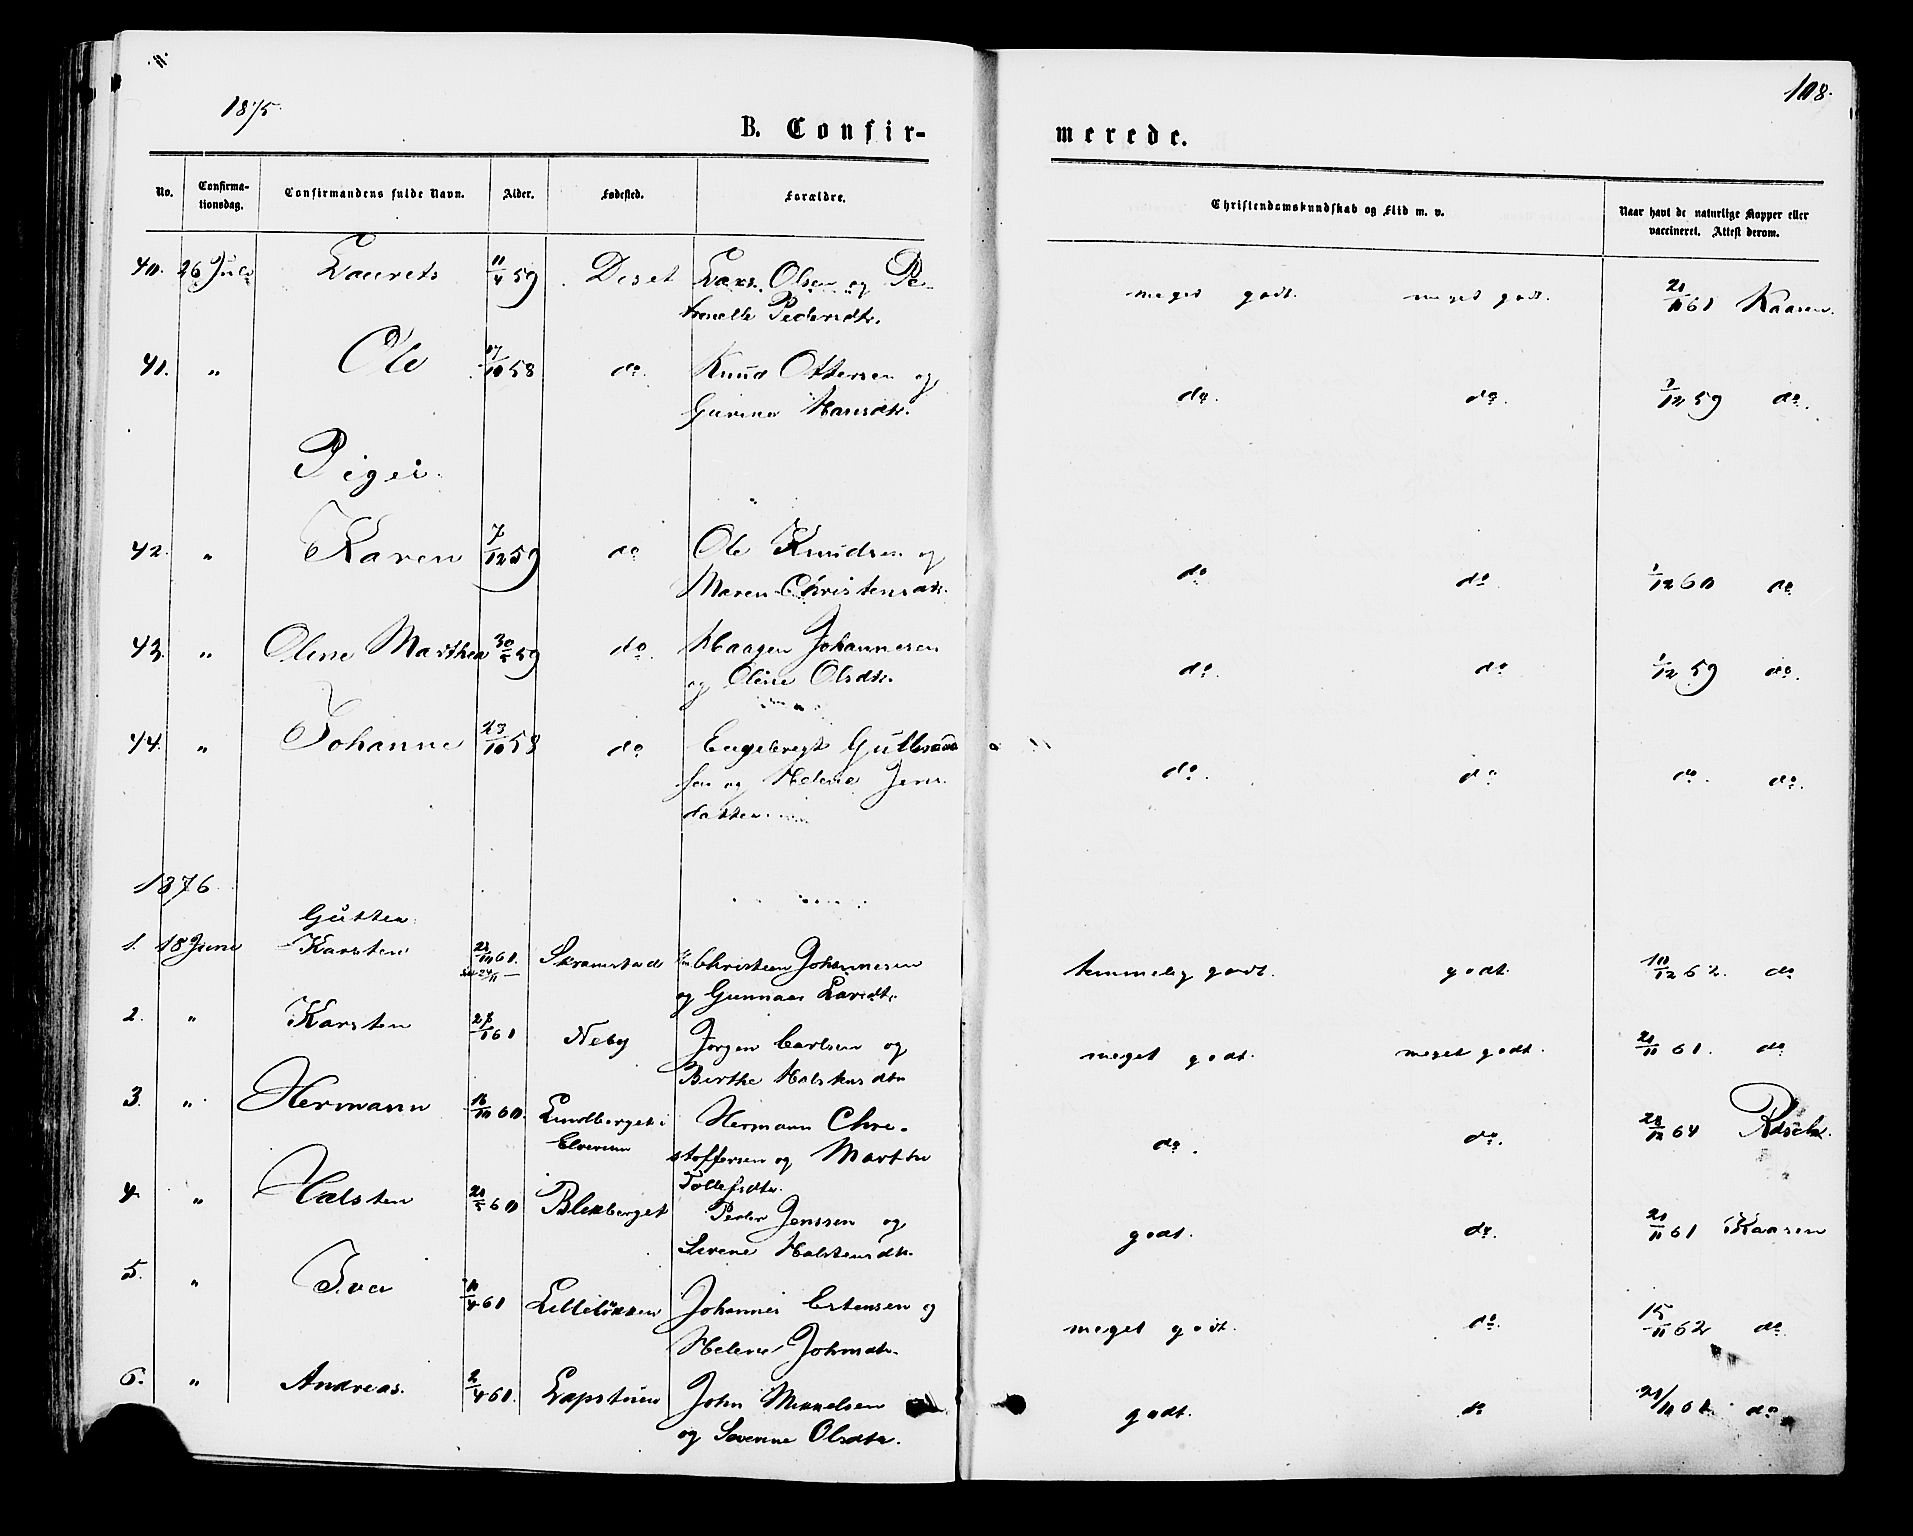 1875
108.
B. Confir-
merede.
No.
Confirma-
tionsdag.
Confirmandens fulde Navn.
Alder.
Fødested.
Forældre.
Christendomskundskab og Flid m. v.
Naar havt de naturlige Kopper eller
vaccineret. Attest derom.
40. 26 Juli Laurits 11/4 59 Deset Lars Olsen og Pe-
tronelle Pedersdtr. meget godt. meget godt. 21/11 61 Kaasen.
41. " Ole 17/10 58 do. Knud Ottersen og
Gurine Hansdtr. do. do. 1/12 59 do.
Piger.
42. " Karen 7/12 59 do Ole Knudsen og
Maren Christensdtr. do do 1/12 60 do
43. " Oline Marthea 30/5 59 do. Haagen Johannesen
og Oline Olsdtr. do. do 1/12 59 do.
44. " Johanne 23/10 58 do Engebregt Gulbrand
sen og Helene Jens
datter. do. do do. do.
1876
Gutter
1. 18 Juni Karsten 61. Skramstad Christian Johannesen
og Gunnaer Larsdtr. temmelig godt. godt 10/12 62. do
2. " Karsten 27/1 61 Neby Jørgen Carlsen og
Birthe Halstensdtr meget godt. meget godt. 21/11 61. do
3. " Hermann 16/10 60. Lundberget i
Elverum Hermann Chri-
stoffersen og Marthe
Tollefsdtr. do. do. 64
4. " Halsten 21/5 60 Blekberget Peder Jenssen og
Sirene Halstensdtr. godt. do. 21/11 61 Kaasen
5. " Iver 11/4 61 Lilleløkken Johannes Estensen og
Helene Johnsdtr. meget godt. do. 15/11 62 do.
6. " Andreas. 2/4 61. Lapstuen John Mikkelsen
og Severine Olsdtr. godt. do 21/11 61. do